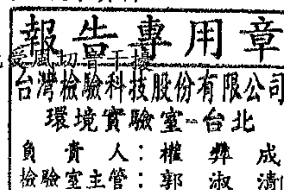 報告專用章
受風切
干擾
台灣檢驗科技股份有限公司
環境實驗室-台北
負責人：權彝成
檢驗室主管：郭淑清